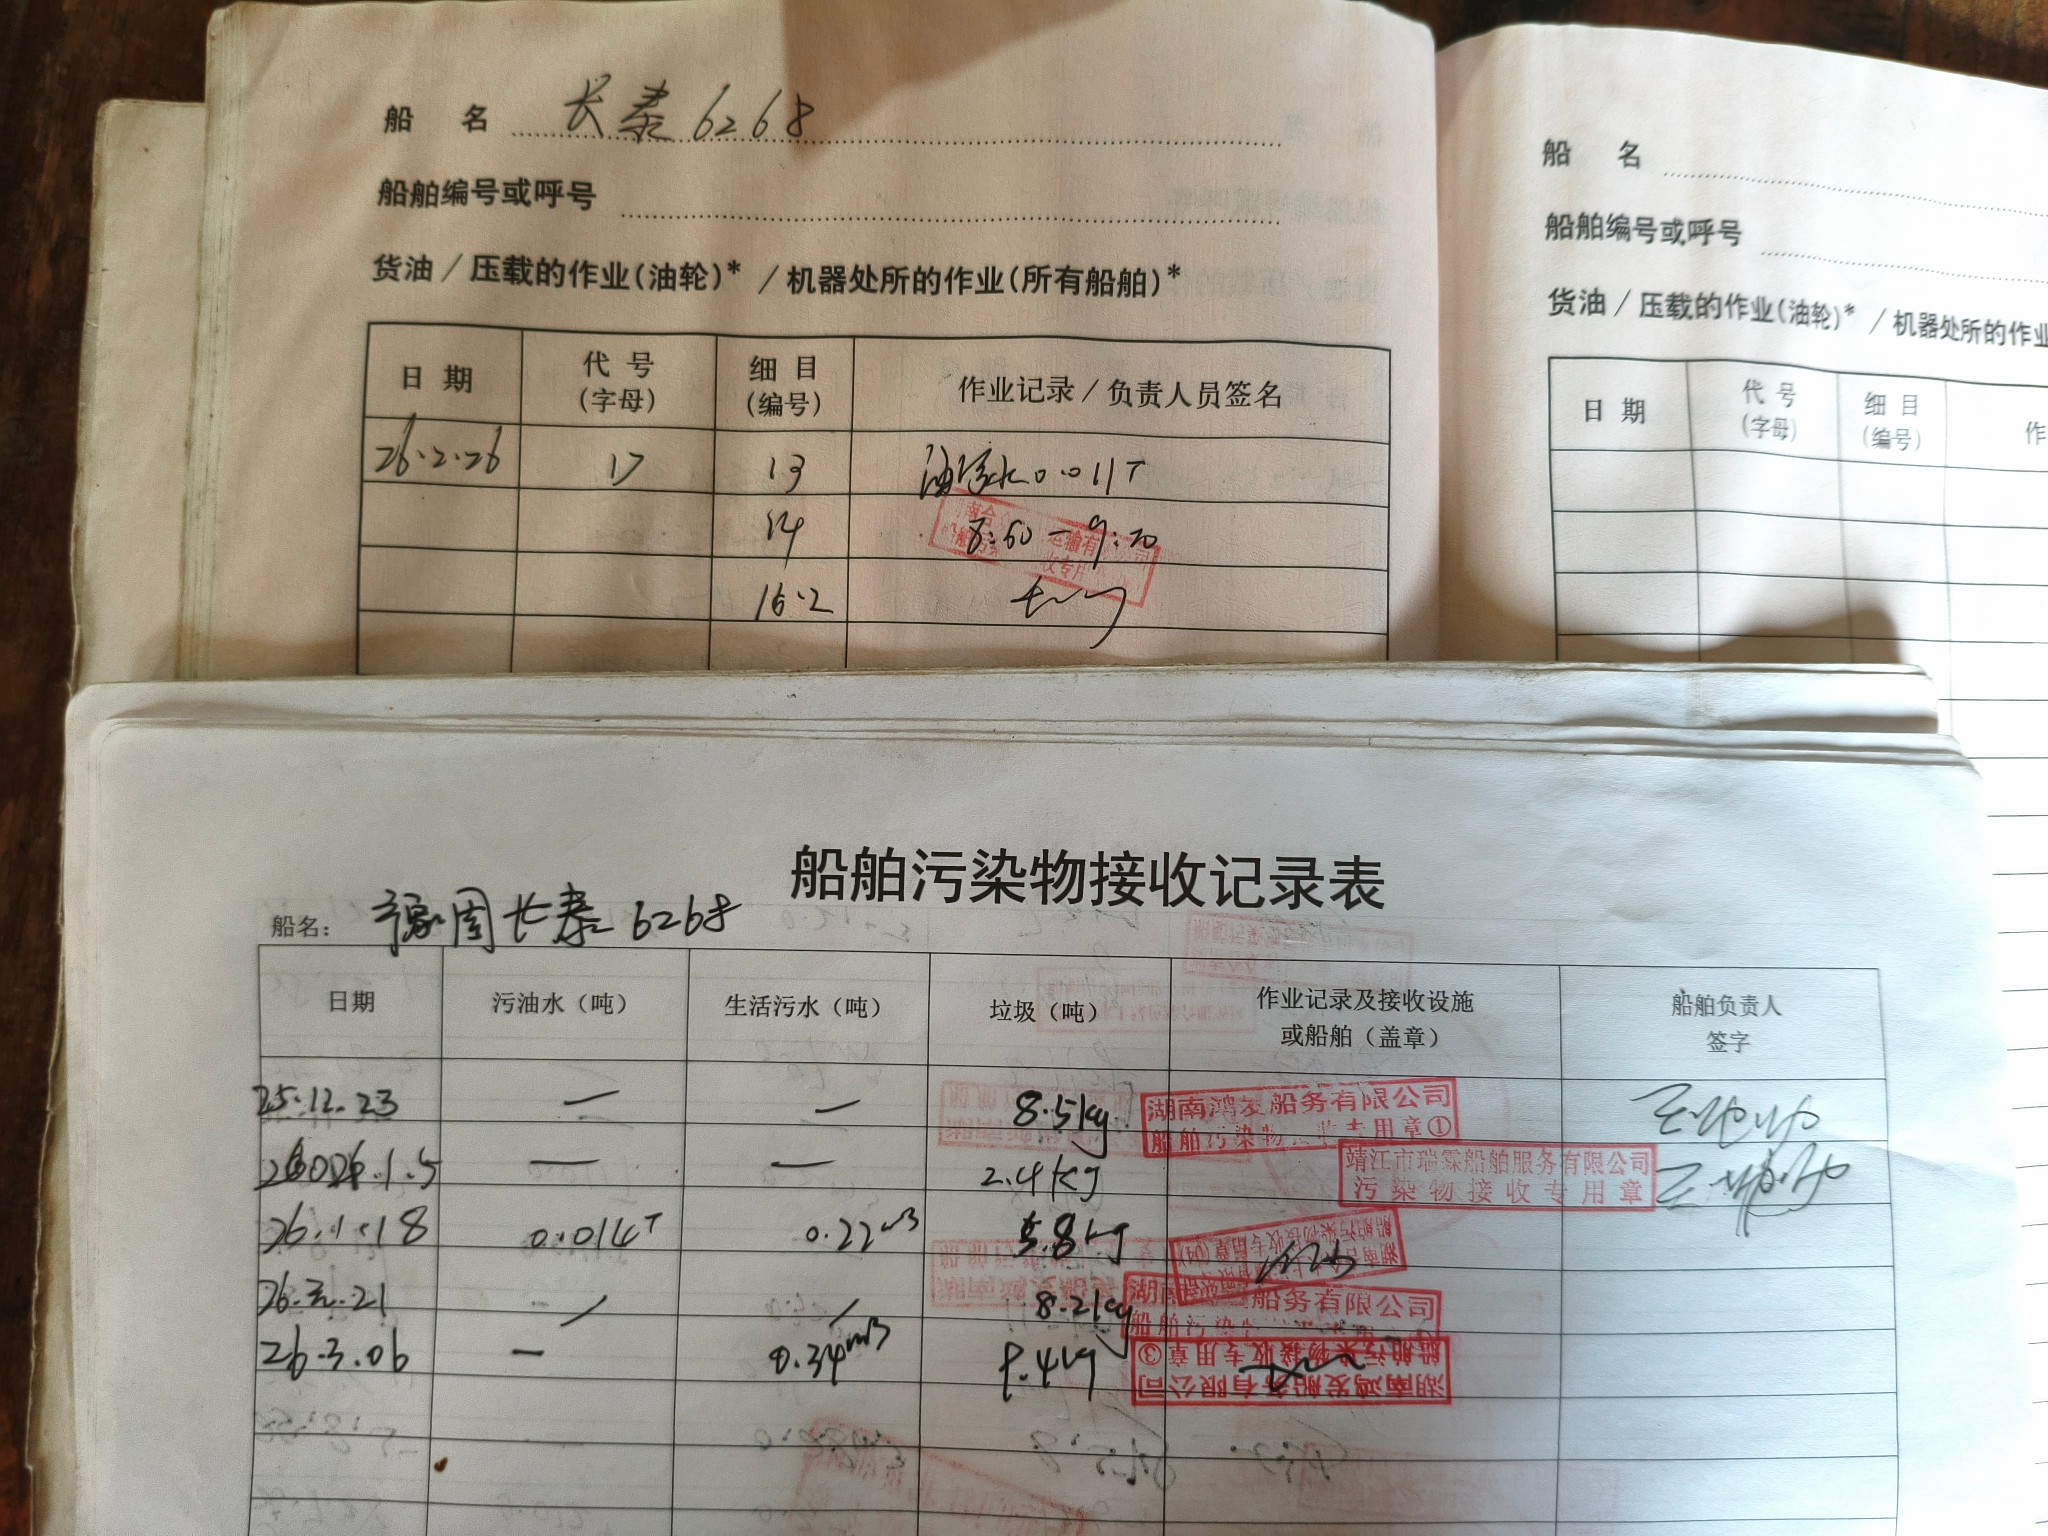 船 名 长泰6268
船舶编号或呼号
货油/压载的作业(油轮)* /机器处所的作业(所有船舶)*
日 期 代 号 (字母) 细 目 (编号) 作业记录/负责人员签名
26.2.26 17 13 油污水0.011T
14 8:50-9:20
16.2
船 名
船舶编号或呼号
货油/压载的作业(油轮)* /机器处所的作业
日 期 代 号 (字母) 细 目 (编号) 作
船舶污染物接收记录表
船名: 豫周长泰6268
日期 污油水(吨) 生活污水(吨) 垃圾(吨) 作业记录及接收设施 或船舶(盖章) 船舶负责人 签字
25.12.23 — — 8.5kg 湖南鸿发船务有限公司
船舶污染物接收专用章①
2026.1.5 — — 2.4kg 靖江市瑞霖船舶服务有限公司
污染物接收专用章
26.1.18 0.014T 0.22m3 5.8kg
26.2.21 / / 8.2kg 湖南 船务有限公司
26.3.06 — 0.34m3 9.4kg 船舶污染物接收专用章③
湖南鸿发船务有限公司